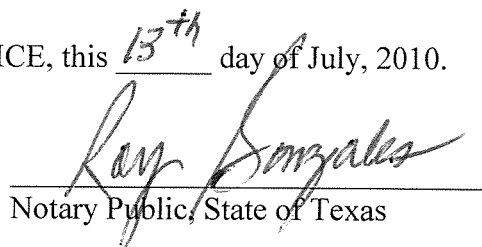 ICE, this 13th day of July, 2010.
Ray Gonzales
Notary Public, State of Texas